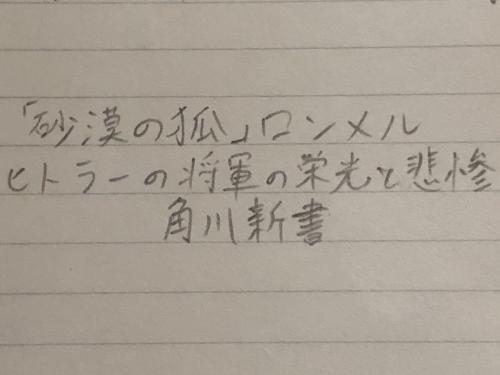 「砂漠の狐」ロンメル
ヒトラーの将軍の栄光と悲惨
角川新書